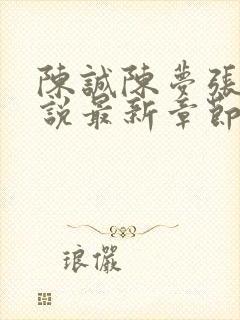 陳誠陳夢張
說最新章節
琅儼